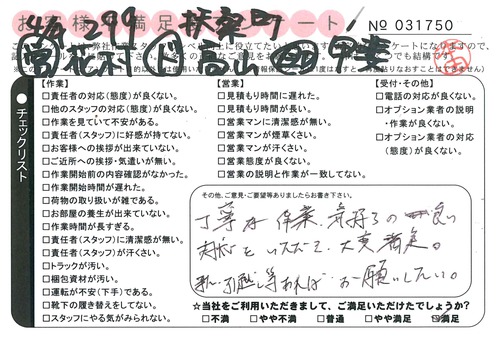 お客様満足 シート
№ 031750
4/4 299 扶桑町
チェックリスト
【作業】
□責任者の対応(態度)が良くない。
□他のスタッフの対応(態度)が良くない。
□作業を見ていて不安がある。
□責任者(スタッフ)に好感が持てない。
□お客様への挨拶が出来ていない。
□ご近所への挨拶・気遣いが無い。
□作業開始前の内容確認がなかった。
□作業開始時間が遅れた。
□荷物の取り扱いが雑である。
□お部屋の養生が出来ていない。
□作業時間が長すぎる。
□責任者(スタッフ)に清潔感が無い。
□責任者(スタッフ)が汗くさい。
□トラックが汚い。
□梱包資材が汚い。
□運転が不安(下手)である。
□靴下の履き替えをしてない。
□スタッフにやる気がみられない。
【営業】
□見積もり時間に遅れた。
□見積もり時間が長い。
□営業マンに清潔感が無い。
□営業マンが煙草くさい。
□営業マンが汗くさい。
□営業態度が良くない。
□営業の説明と作業が一致してない。
【受付・その他】
□電話の対応が良くない。
□オプション業者の説明
・作業が良くない。
□オプション業者の対応
(態度)が良くない。
その他、ご意見・ご要望等ありましたらお書き下さい。
丁寧な作業、気持ちの良い
対応をいただき、大変満足。
又、引越し等あれば お願いしたい。
☆当社をご利用いただきまして、ご満足いただけたでしょうか?
□不満 □やや不満 □普通 □やや満足 ☑満足